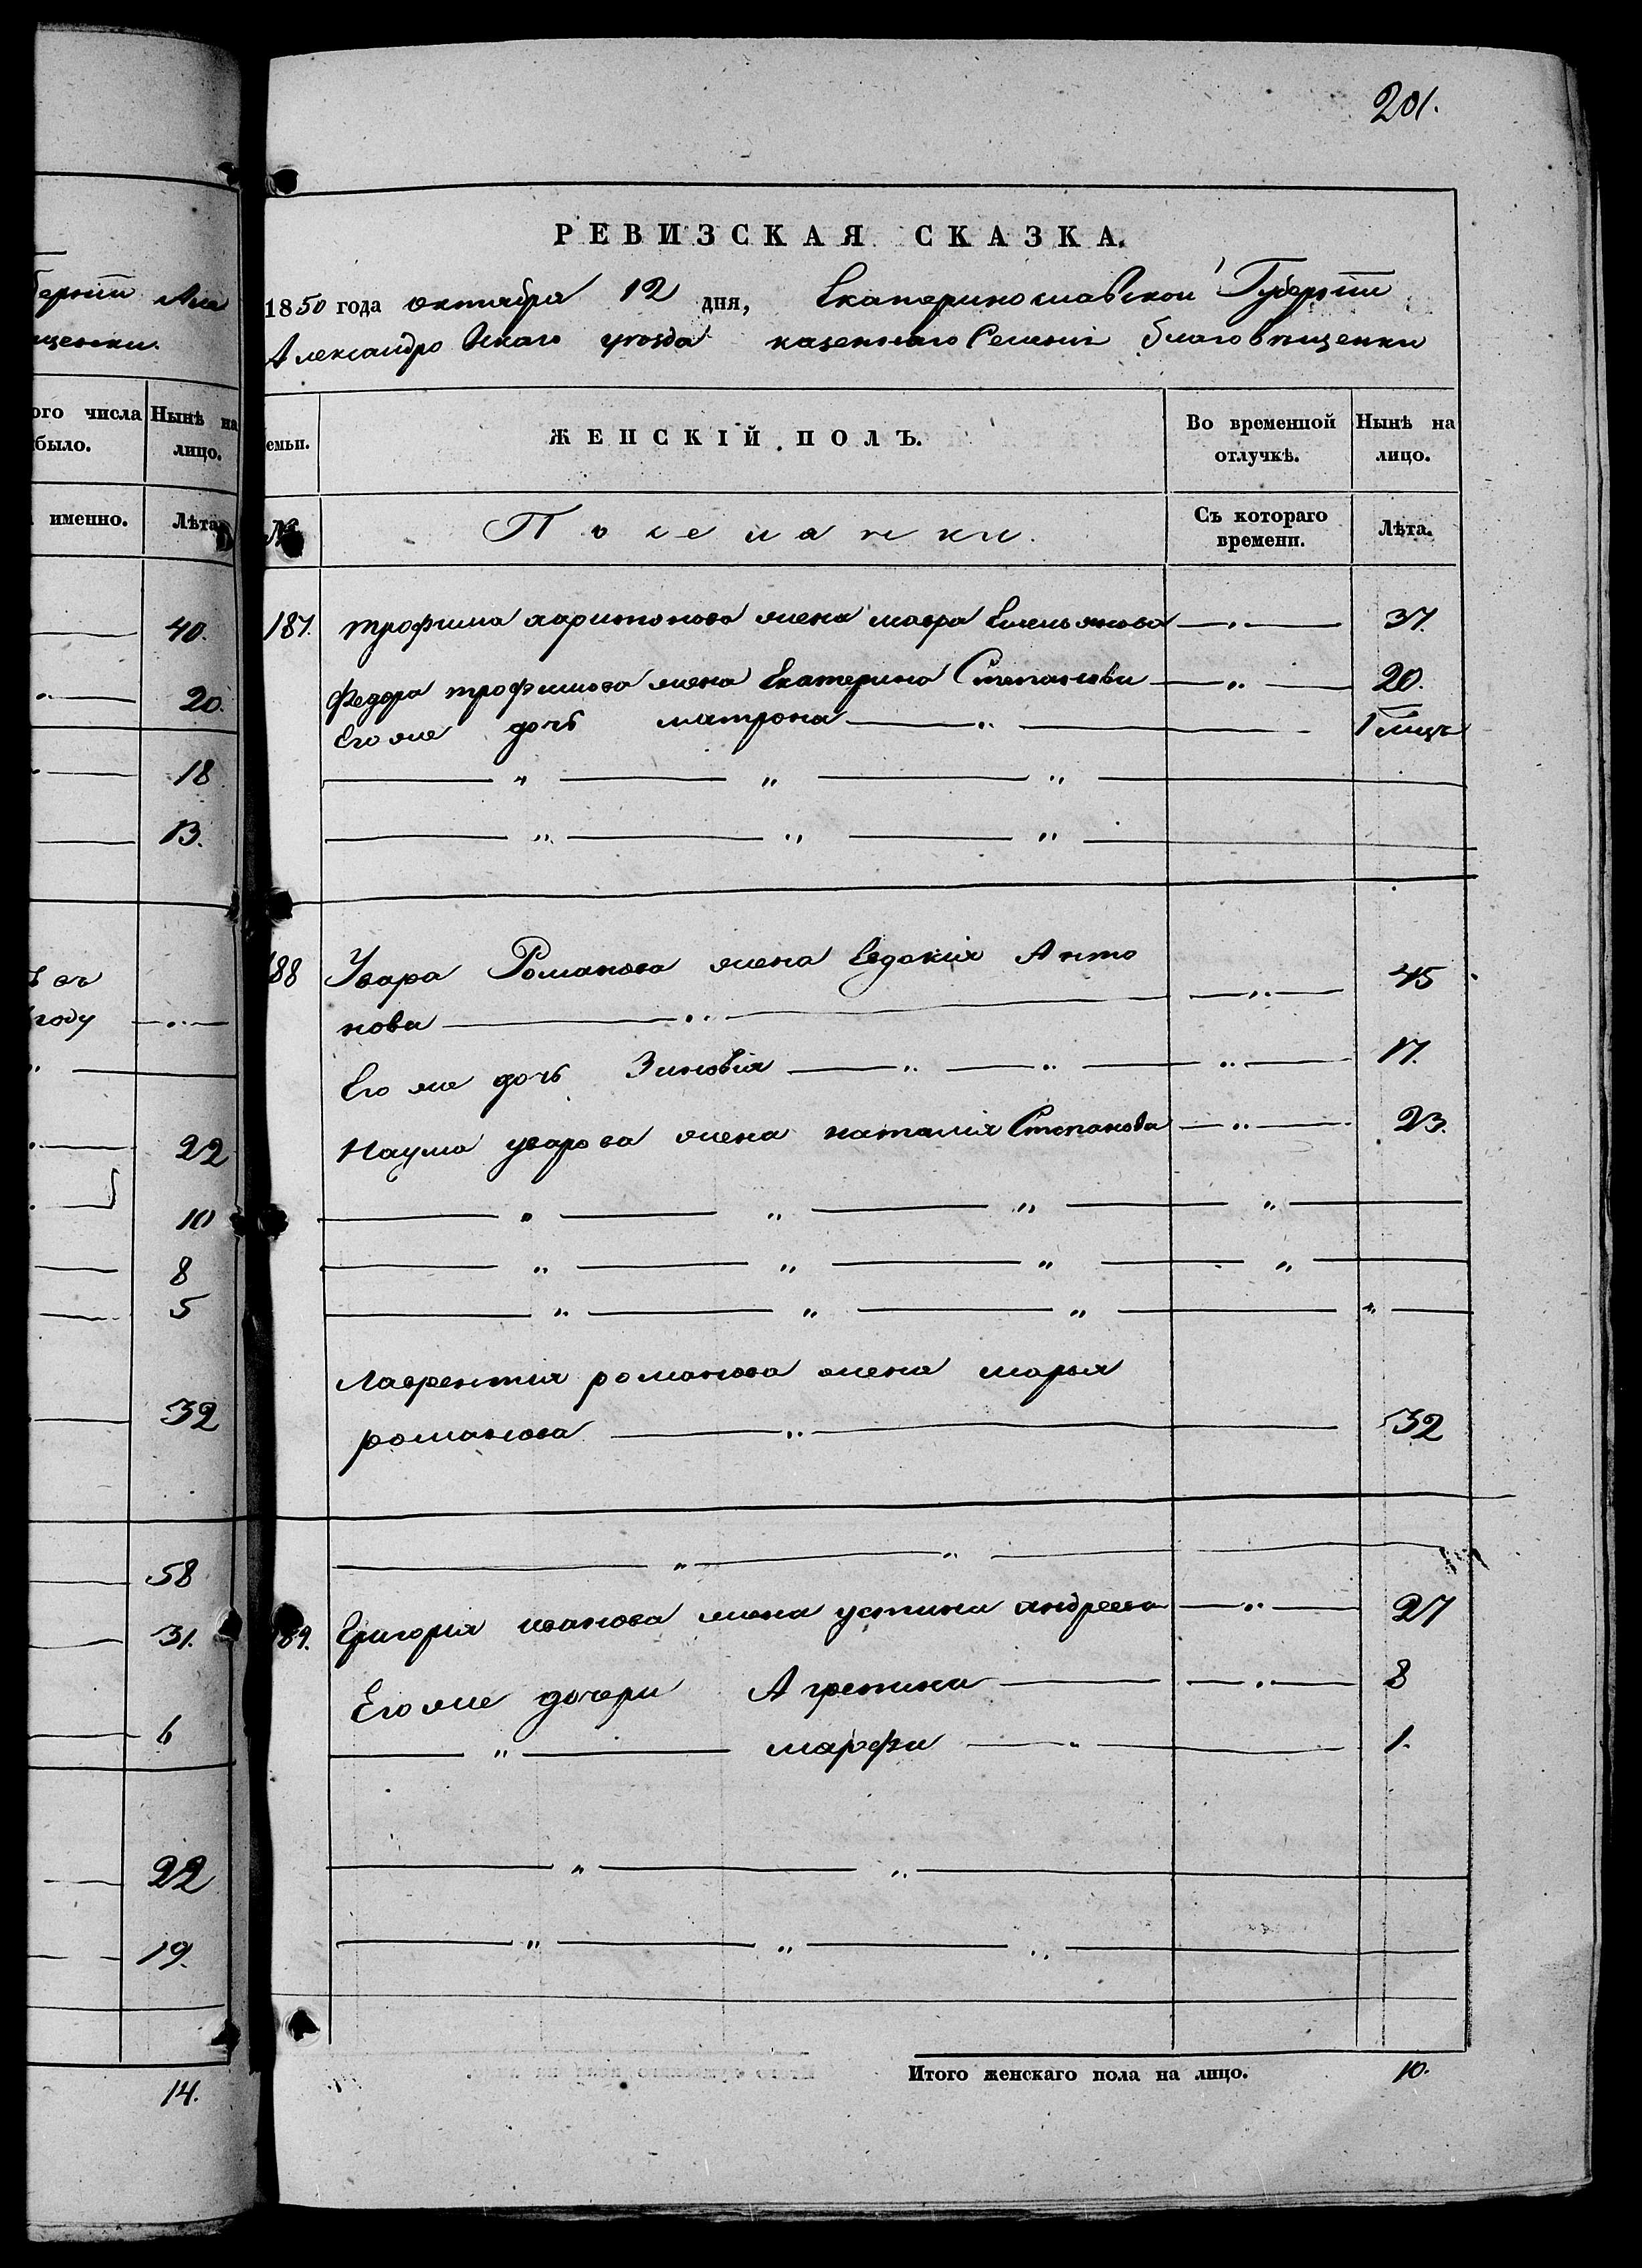 201.
РЕВИЗСКАЯ СКАЗКА.
1850 года октября 12 дня, Екатеринославской Губернiи
Александровскаго уѣзда казеннаго Селенiя благовѣщенки
берніи Але
щенки.
ого числа Нынѣ на
было. лицо.
именно. Лѣта
емьи. ЖЕНСКІЙ ПОЛЪ. Во временной отлучкѣ. Нынѣ на лицо.
№ Поселянки. Съ котораго времени. Лѣта.
40.
20.
18
13.
году
22
10
8
5
32
58
31.
6
22
19.
14.
187. трофима харитонова жена мавра Емельянова — „ — 37.
Федора трофимова жена Екатерина Степанова — „ — 20.
Его же дочь матрона — „ — 1 мцъ
— „ — „ — „ —
— „ — „ — „ —
188 Увара Романова жена Евдокія Анто
нова — „ — „ — 45
Его же дочь Зиновія — „ — „ — „ — 17.
Наума уварова жена наталія Степанова — „ — 23.
— „ — „ — „ — „ —
— „ — „ — „ — „ —
— „ — „ — „ — „ —
Лаврентія романова жена марья
романова — „ — 32
— „ — „ —
89. Григорія иванова жена устина андреева — „ — 27
Его же дочери Агрепина — „ — 8
— „ — марфа — „ — 1.
— „ — „ —
— „ — „ — „ —
Итого женскаго пола на лицо. 10.